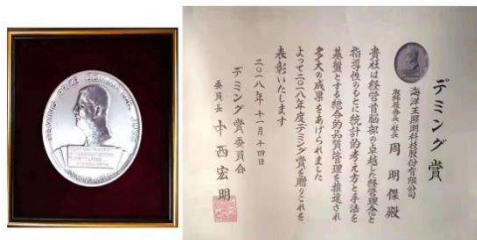 デミング賞
海洋王照明科技股份有限公司
周明傑殿
貴社は経営首脳部の卓越した経営理念と
指導性のもとに統計的考え方と手法を
基盤とする総合的品質管理を推進され
多大の成果をあげられました
よって二〇一八年度デミング賞を贈りこれを
表彰いたします
二〇一八年十一月十四日
デミング賞委員会
委員長 中西宏明